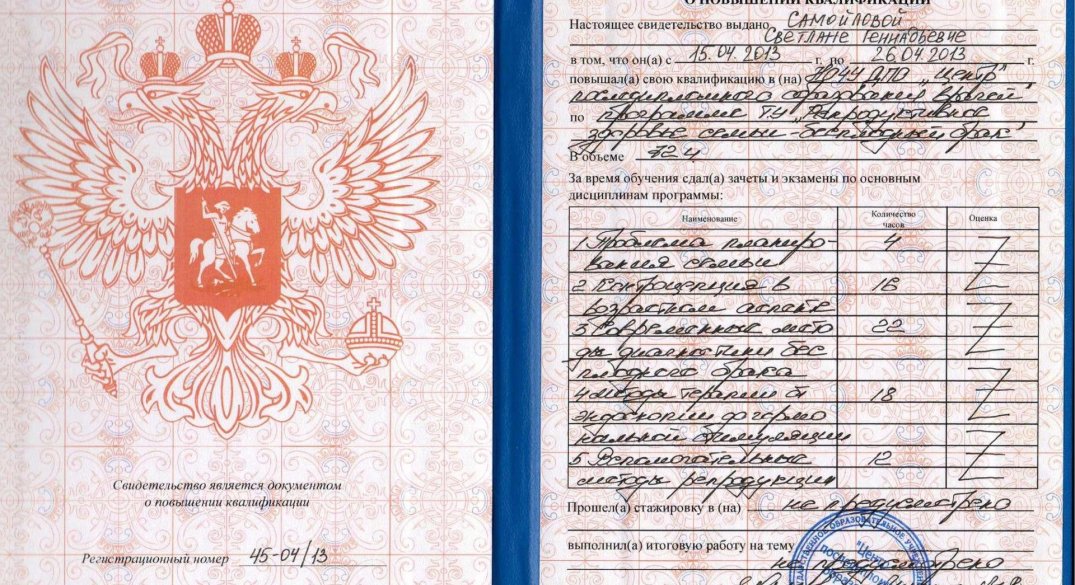 Свидетельство является документом
о повышении квалификации
Регистрационный номер 45-04/13
О ПОВЫШЕНИИ КВАЛИФИКАЦИИ
Настоящее свидетельство выдано САМОЙЛОВОЙ
СВЕТЛАНЕ ГЕННАДЬЕВНЕ
в том, что он(а) с 15.04.2013 г. по 26.04.2013 г.
повышал(а) свою квалификацию в (на) НОЧУ ДПО "Центр
последипломного образования врачей"
по программе ТУ "Репродуктивное
здоровье семьи - бесплодный брак"
В объеме 72 ч
За время обучения сдал(а) зачеты и экзамены по основным
дисциплинам программы:
Наименование Количество часов Оценка
1 Проблема планиро- 4
вания семьи
2 Контрацепция в 16
возрастном аспекте
3 Современные мето 22
ды диагностики бес
плодного брака
4 методы терапии от 18
эндоскопии до гормо
нальной стимуляции
5 Вспомогательные 12
методы репродукции
Прошел(а) стажировку в (на) не предусмотрено
выполнил(а) итоговую работу на тему
не предусмотрено